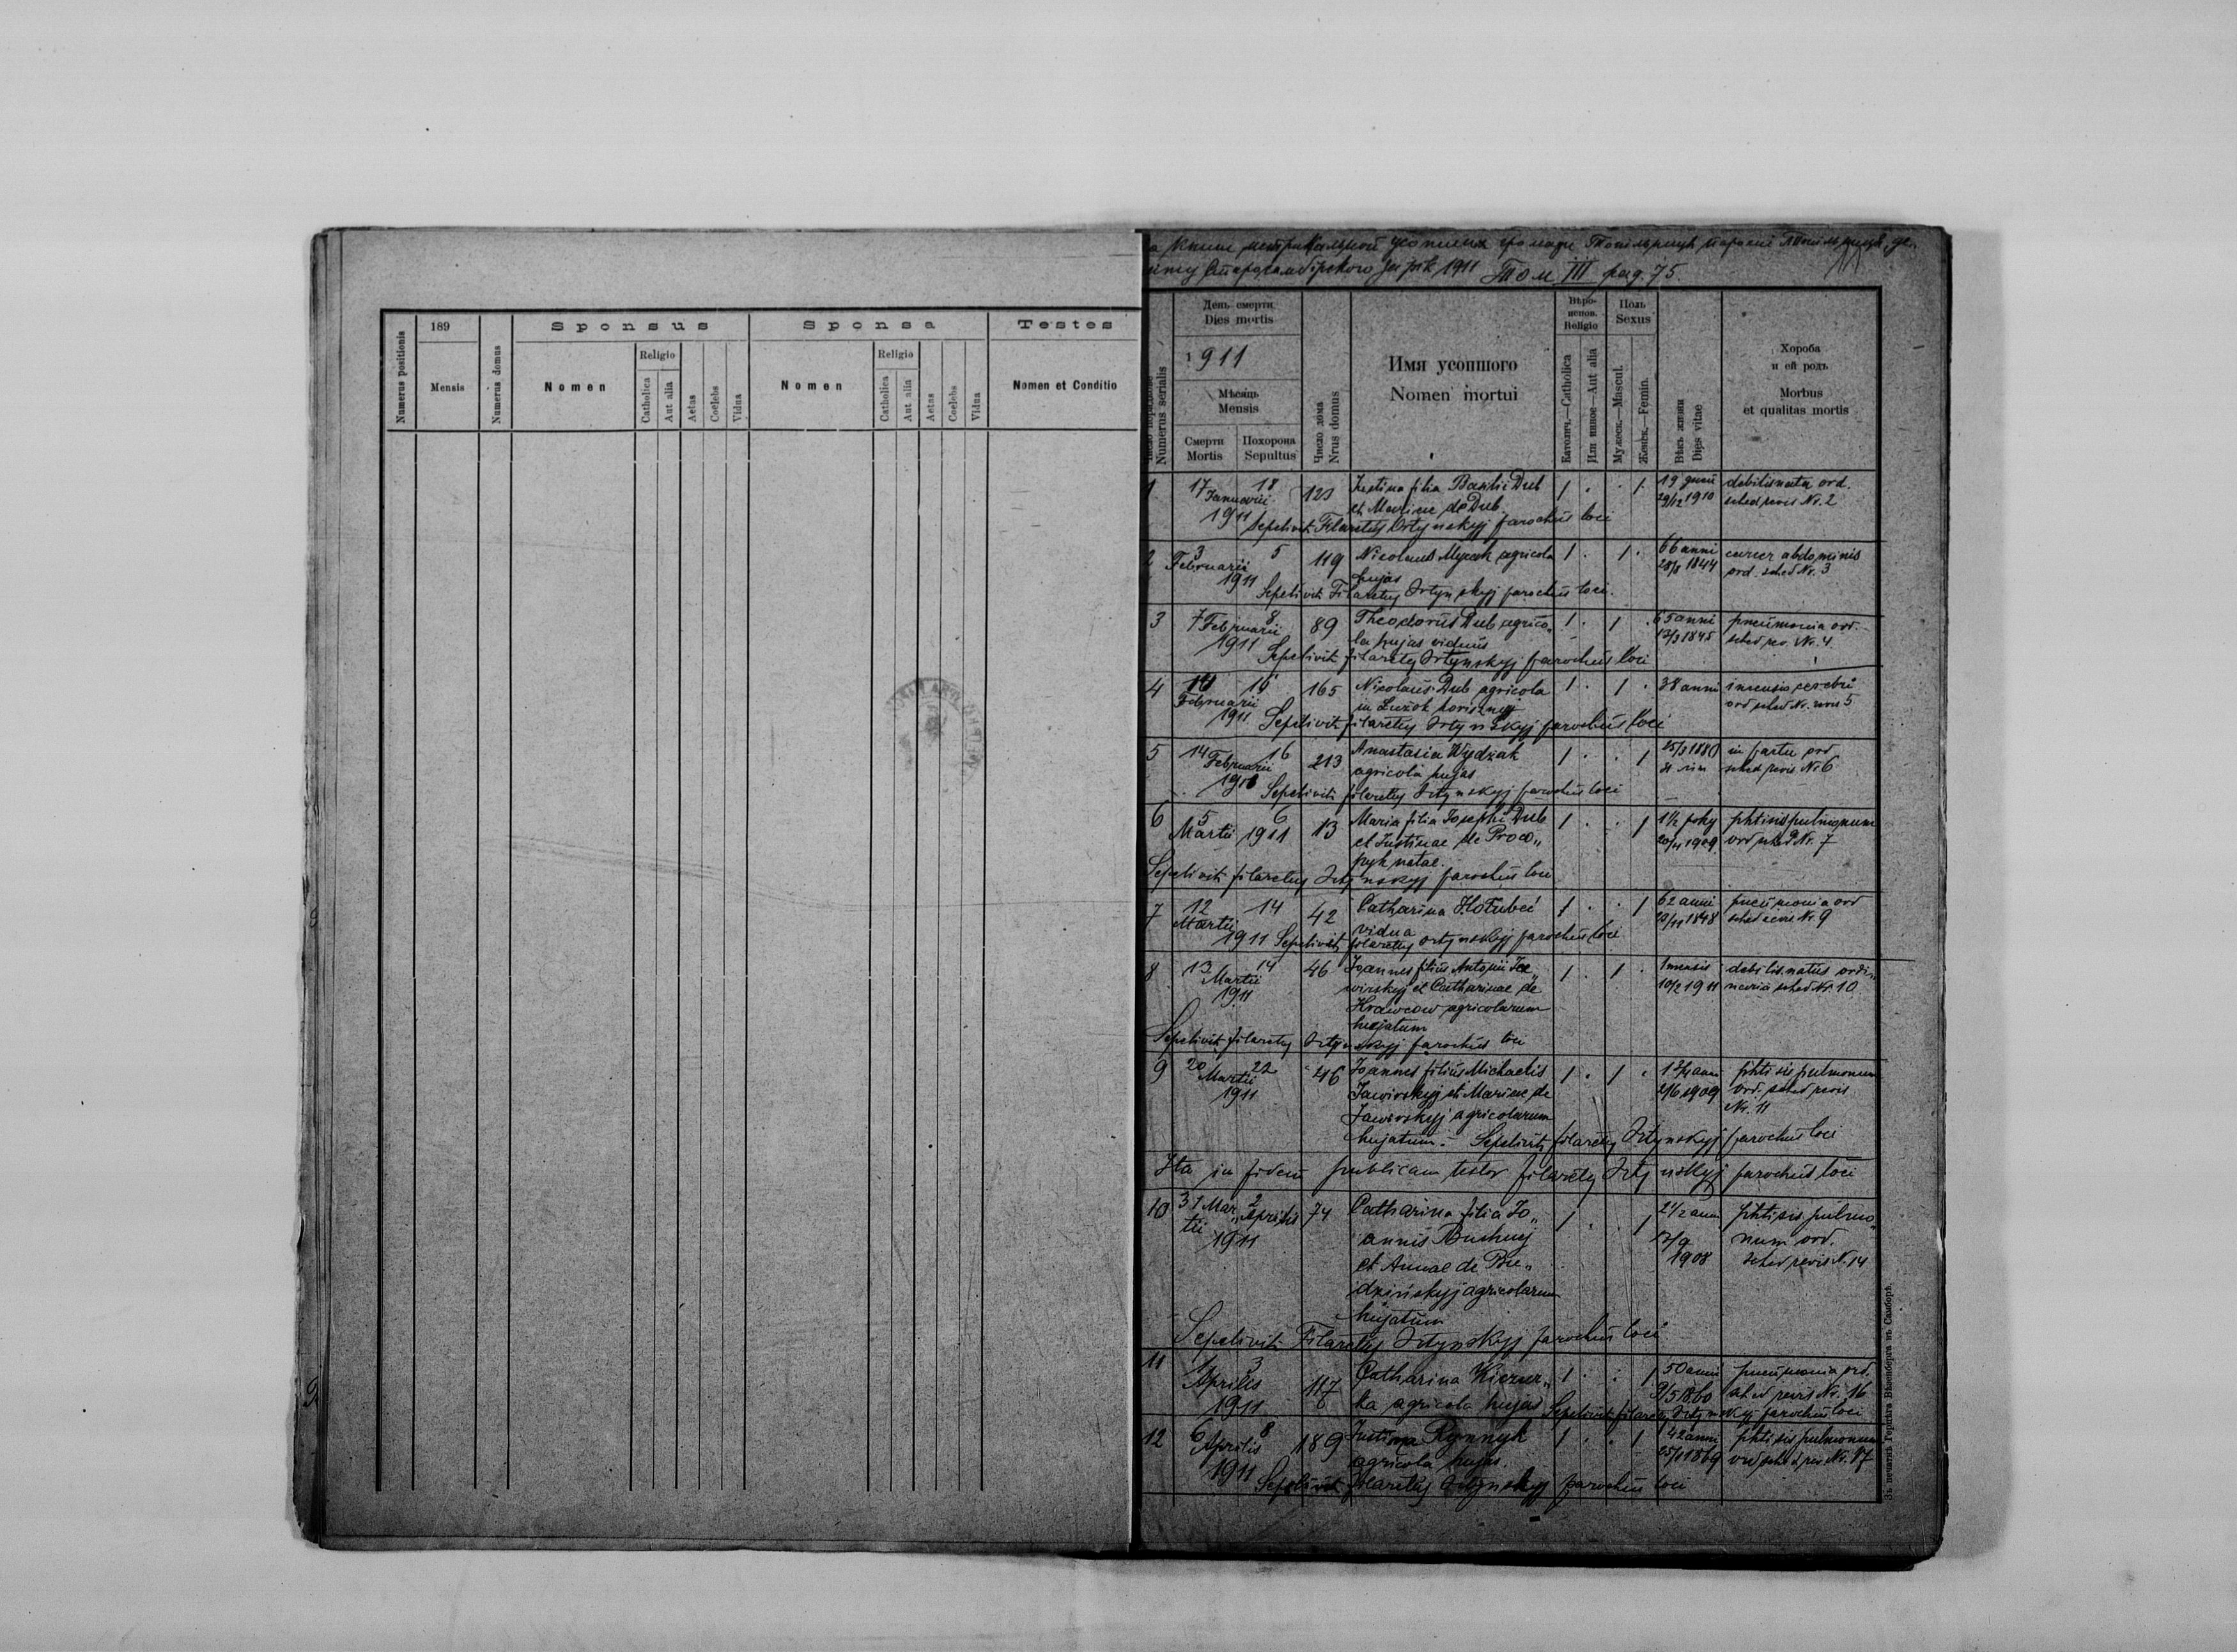 189
Numerus positionis
Mensis
Numerus domus
Sponsus
Nomen
Religio
Catholica
Aut alia
Aetas
Coelebs
Vidua
Sponsa
Nomen
Religio
Catholica
Aut alia
Aetas
Coelebs
Vidua
Testes
Nomen et Conditio
Том III pag. 75
за рік 1911
Numerus serialis
День смерти
Dies mortis
1911
Мѣсяць
Mensis
Смерти
Mortis
Похорона
Sepultus
Число дома
Nrus domus
Имя усопшого
Nomen mortui
Вѣро-
испов.
Religio
Католич.—Catholica
Или иное—Aut alia
Поль
Sexus
Мужеск.—Mascul.
Женск.—Femin.
Вѣкъ жизни
Dies vitae
Хороба
и ей родъ
Morbus
et qualitas mortis
1 17 18 123 Justina filia Basilii Dub 1 . . 1 19 debilis nata ord.
Januarii et Mariae de Dub 29/12 1910 sched revis Nr. 2
1911 Sepelivit Filaretus Ortynskyj parochus loci
2 3 5 119 Nicolaus agricola 1 . 1 . 66 anni cancer abdominis
Februarii hujas 1844 ord. sched Nr. 3
1911 Sepelivit Filaretus Ortynskyj parochus loci
3 7 8 89 Theodorus Dub agrico„ 1 . 1 . 65 anni pneumonia ord.
Februarii la hujas viduus 1845 sched rev. Nr. 4
1911 Sepelivit filaretus Ortynskyj parochus loci
4 165 Nicolaus Dub agricola 1 . 1 . 38 anni cerebri
Februarii in Łużok ord sched Nr. revis 5
1911 Sepelivit filaretus Ortynskyj parochus loci
5 14 16 213 Anastasia Wydżak 1 . . 1 25/3 1880 in partu ord
Februarii agricola hujas sched revis Nr 6
Sepelivit filaretus Ortynskyj parochus loci
6 5 6 13 Maria filia Josephi Dub 1 . . 1 1½ phtisis pulmonum
Martii 1911 et Justinae de Proco„ 1909 ord sched Nr. 7
pyk natae.
Sepelivit filaretus Ortynskyj parochus loci
7 12 14 42 Catharina Hołubeć 1 . . 1 62 anni pneumonia ord
Martii vidua 1848 sched revis Nr. 9
1911 Sepelivit filaretus Ortynskyj parochus loci
8 13 14 46 Joannes filius Antonii 1 . 1 . 1 mensis debilis natus ordi„
Martii et Catharinae de 10/2 1911 naria sched Nr. 10
1911 Krawcow agricolarum
hujatum
Sepelivit filaretus Ortynskyj parochus loci
9 20 22 46 Joannes filius Michaelis 1 . 1 . phtisis pulmonum
Martii Jawirskyj et Mariae de 1909 ord. sched revis
1911 Jawirskyj agricolarum Nr. 11
hujatum. Sepelivit filaretus Ortynskyj parochus loci
Ita in fidem publicam testor filaretus Ortynskyj parochus loci
10 31 Mar„ 2 Aprilis 74 Catharina filia Jo„ 1 . . 1 2½ anni phtisis pulmo„
tii annis num ord.
1911 et Annae de Bu„ 1908 sched revis N. 14
dzińskyj agricolarum
hujatum
Sepelivit Filaretus Ortynskyj parochus loci
11 1 3 117 Catharina 1 . . 1 50 anni pneumonia ord.
Aprilis ka agricola hujas 1860 sched revis Nr. 16
1911 Sepelivit filaretus Ortynskyj parochus loci
12 6 8 189 Justina Rynnyk 1 . . 1 42 anni phtisis pulmonum
Aprilis agricola hujas. 1869 ord sched rev Nr. 17
1911 Sepelivit filaretus Ortynskyj parochus loci
Зъ печатнѣ Герцига Вѣсенберга въ Самборѣ.